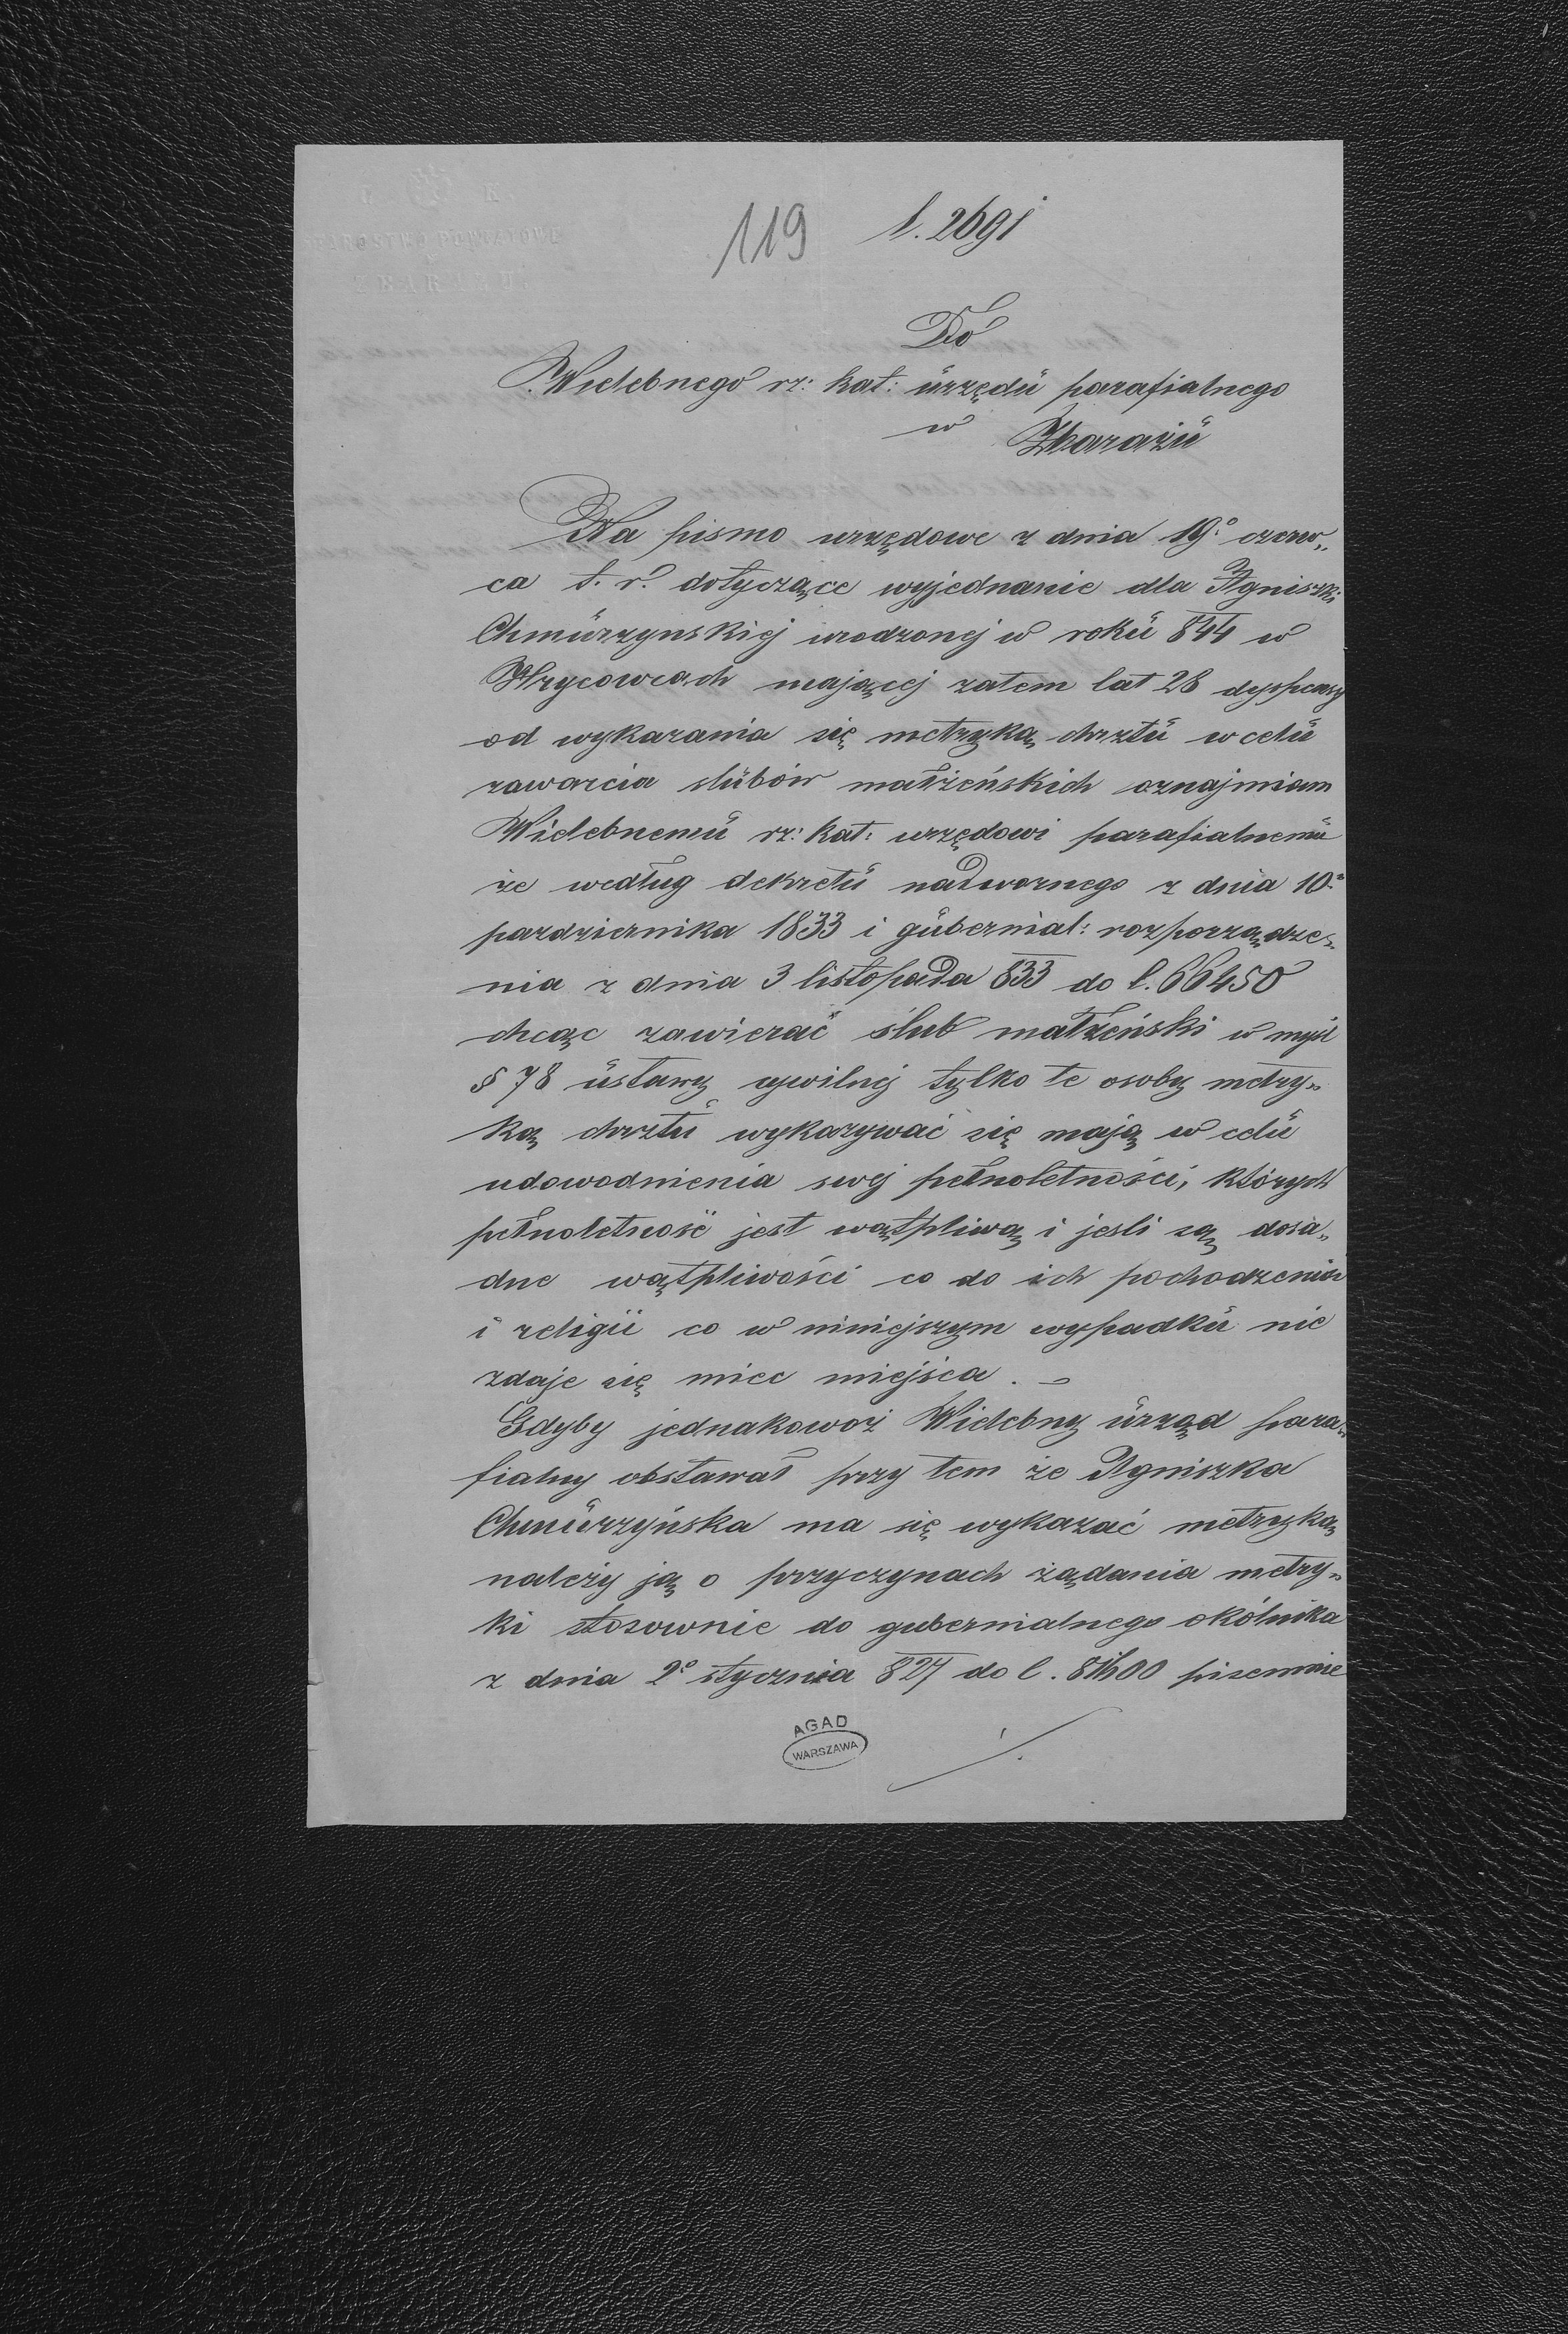 STAROSTWO POWIATOWE
119
l. 2691
Do
Wielebnego rz: kat: urzędu parafialnego
w Zbarażu
Na pismo urzędowe z dnia 19º czerw„
ca t. r. dotyczące wyjednanie dla Agniszki
Chmurzynskiej urodzonej w roku 844 w
Hrycowcach mającej zatem lat 28 dyspensy
od wykazania się metryką chrztu w celu
zawarcia slubów małżeńskich oznajmiam
Wielebnemu rz: kat: urzędowi parafialnemu
że według dekretu nadwornego z dnia 10º
pazdziernika 1833 i gubernial: rozporządze„
nia z dnia 3 listopada 833 do l. 66450
chcąc zawierać ślub małżeński w myśl
§ 78 ustawy cywilnej tylko te osoby metry„
ką chrztu wykazywać się mają w celu
udowodnienia swej pełnoletności, których
pełnoletność jest wątpliwą i jesli są dosa„
dne wątpliwości co do ich pochodzenia
i religii co w niniejszym wypadku nie
zdaje się miec miejsca. –
Gdyby jednakowoż Wielebny urząd para„
fialny obstawał przy tem że Agniszka
Chmurzyńska ma się wykazać metryką
należy ją o przyczynach żądania metry„
ki stosownie do gubernialnego okólnika
z dnia 2º stycznia 827 do l. pisemnie
./.
AGAD
WARSZAWA